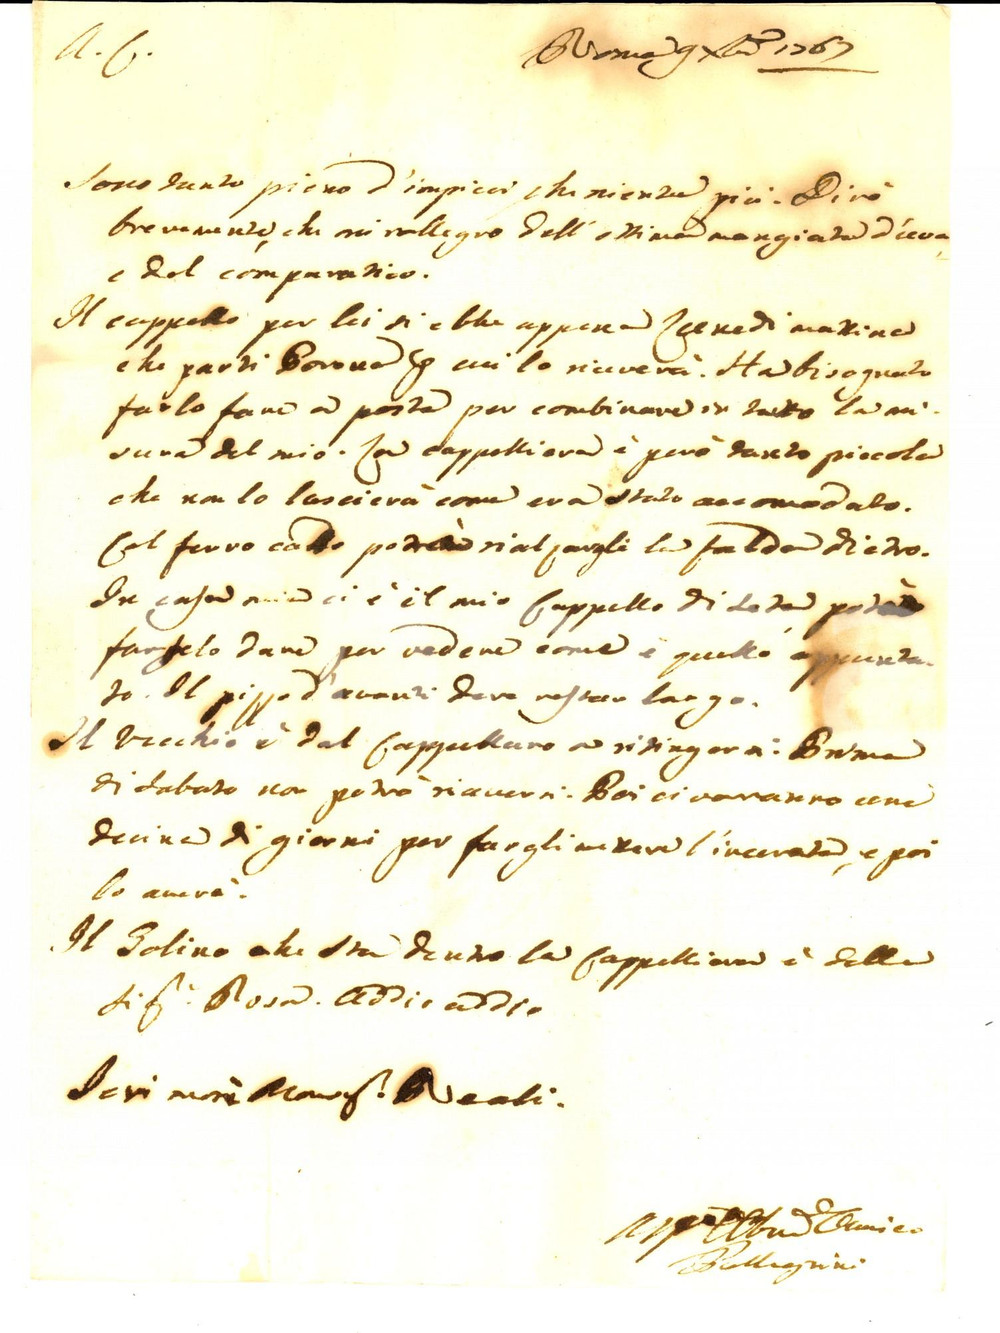 A. C.
Roma 9 Xbre 1767
Sono tanto pieno d'impicci che niente più. Dirò
brevemente, che mi rallegro dell'ottima mangiata d'uva,
e del comparatico.
Il cappello per lei si ebbe appena Lunedì mattina
che partì Corona che lo riceverà. Ha bisognato
farlo fare a posta per combinare in tutto la mi-
sura del mio. La cappelliera è però tanto piccola
che non lo lascierà come era stato accomodato.
Col ferro caldo potrà rialzargli la falda dietro.
In casa mia ci è il mio Cappello di seta potrà
farselo dare per vedere come è quello appunta-
to. Il pizzo d'avanti deve restar largo.
Il Vecchio è dal Cappellaro a ritingersi. Prima
di sabato non potrò riaversi. Poi ci vorranno una
decina di giorni per fargli mettere l'incerata, e poi
lo averà.
Il Golino che sta dentro la Cappelliera è della
Sigra. Rosa. Addio addio
Ieri morì Monsigr. Reali.
Amico
Pellegrini